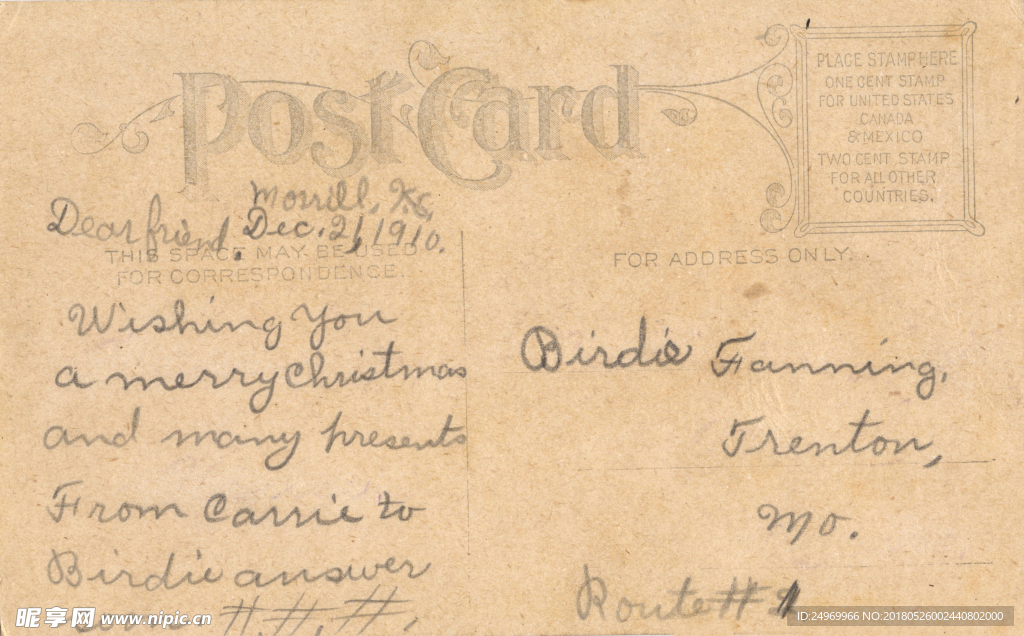 Post Card
PLACE STAMP HERE
ONE CENT STAMP
FOR UNITED STATES
CANADA
& MEXICO
TWO CENT STAMP
FOR ALL OTHER
COUNTRIES.
Morrill, Ks,
Dear friend. Dec. 21, 1910.
THIS SPACE MAY BE USED
FOR CORRESPONDENCE.
Wishing You
a merry Christmas
and many presents
From Carrie to
Birdie answer
#. #. #.
FOR ADDRESS ONLY.
Birdie Fanning,
Trenton,
Mo.
Route #
昵享网 www.nipic.cn
ID:24969966 NO:20180526002440802000